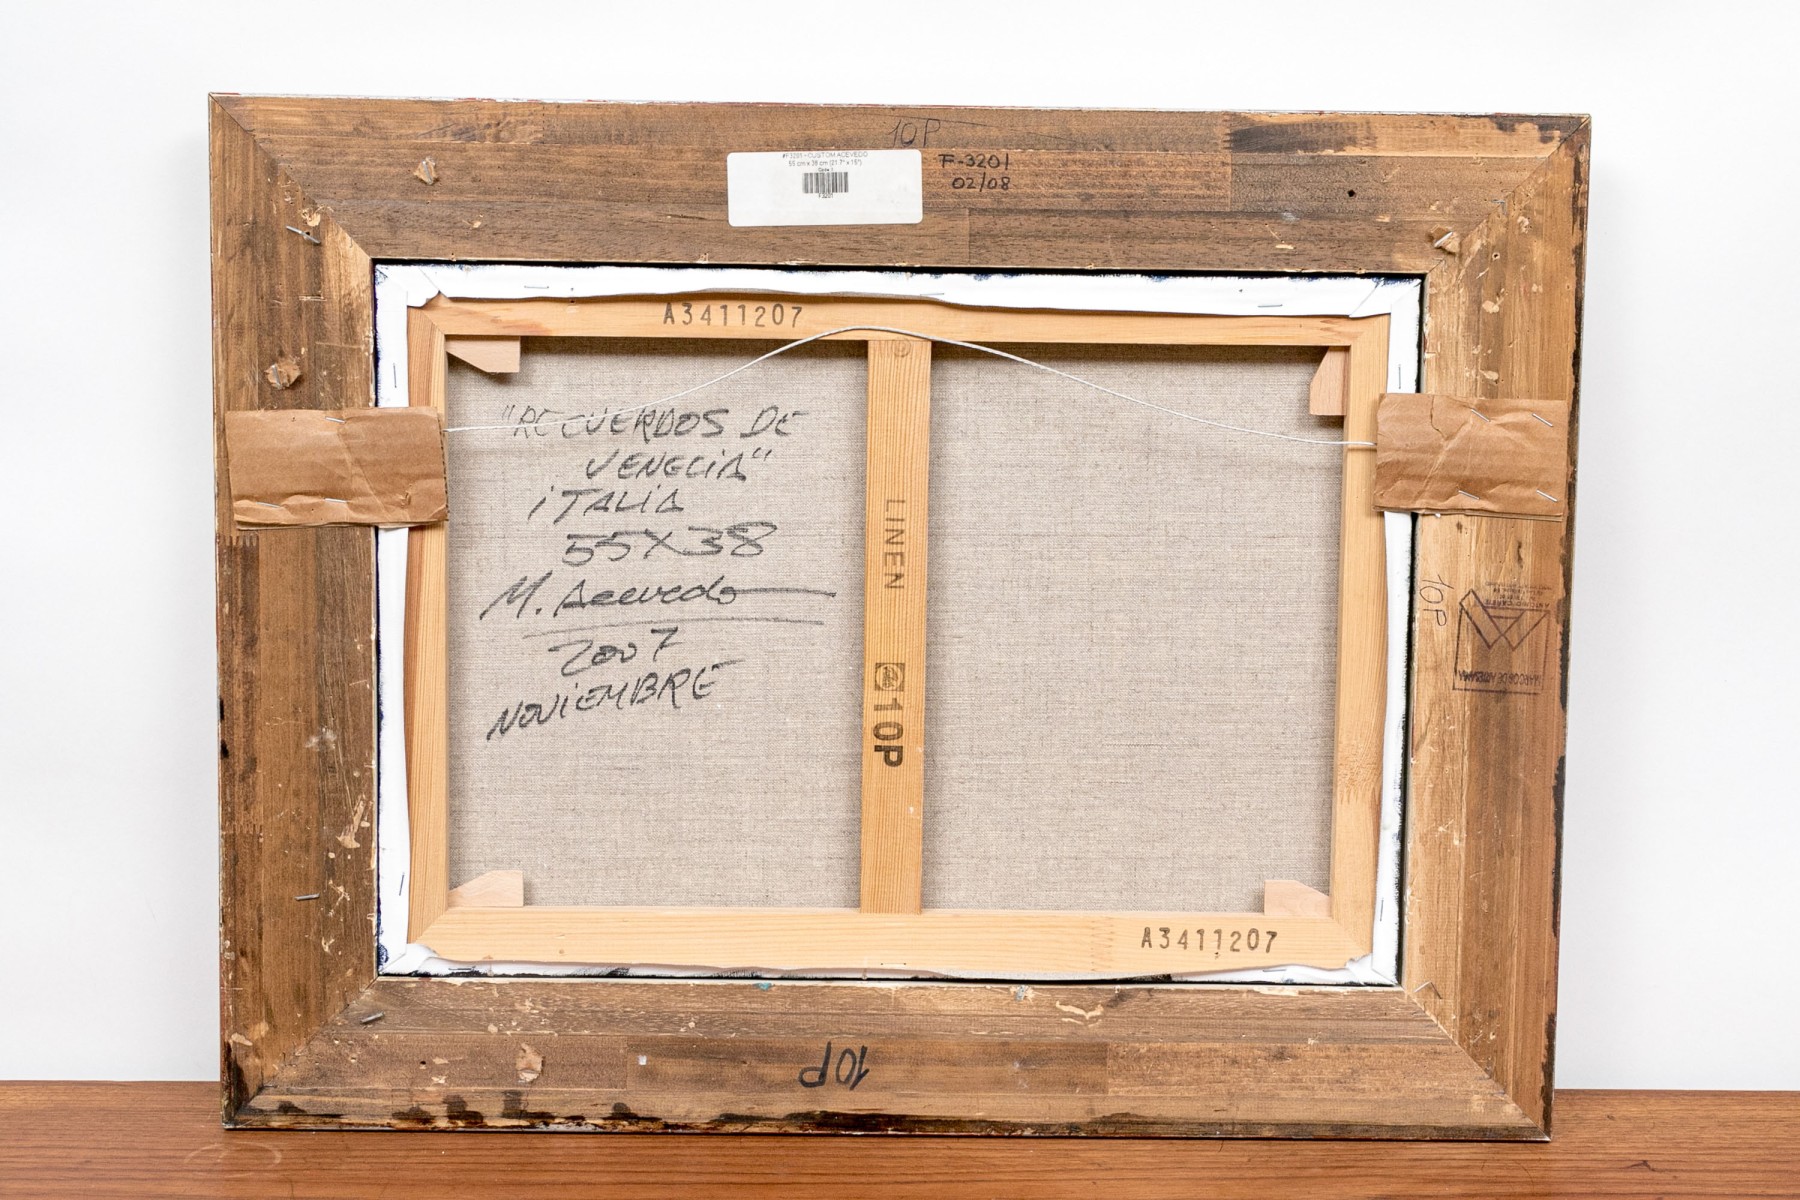 10P
55 cm x 38 cm (21.7" x 15")
F3201
F-3201
02/08
A3411207
"RECUERDOS DE
VENECIA"
iTALiA
55X38
M. Acevedo
2007
NOViEMBRE
LINEN
10P
10P
MARCOS DE ARTESANIA
A3411207
10P